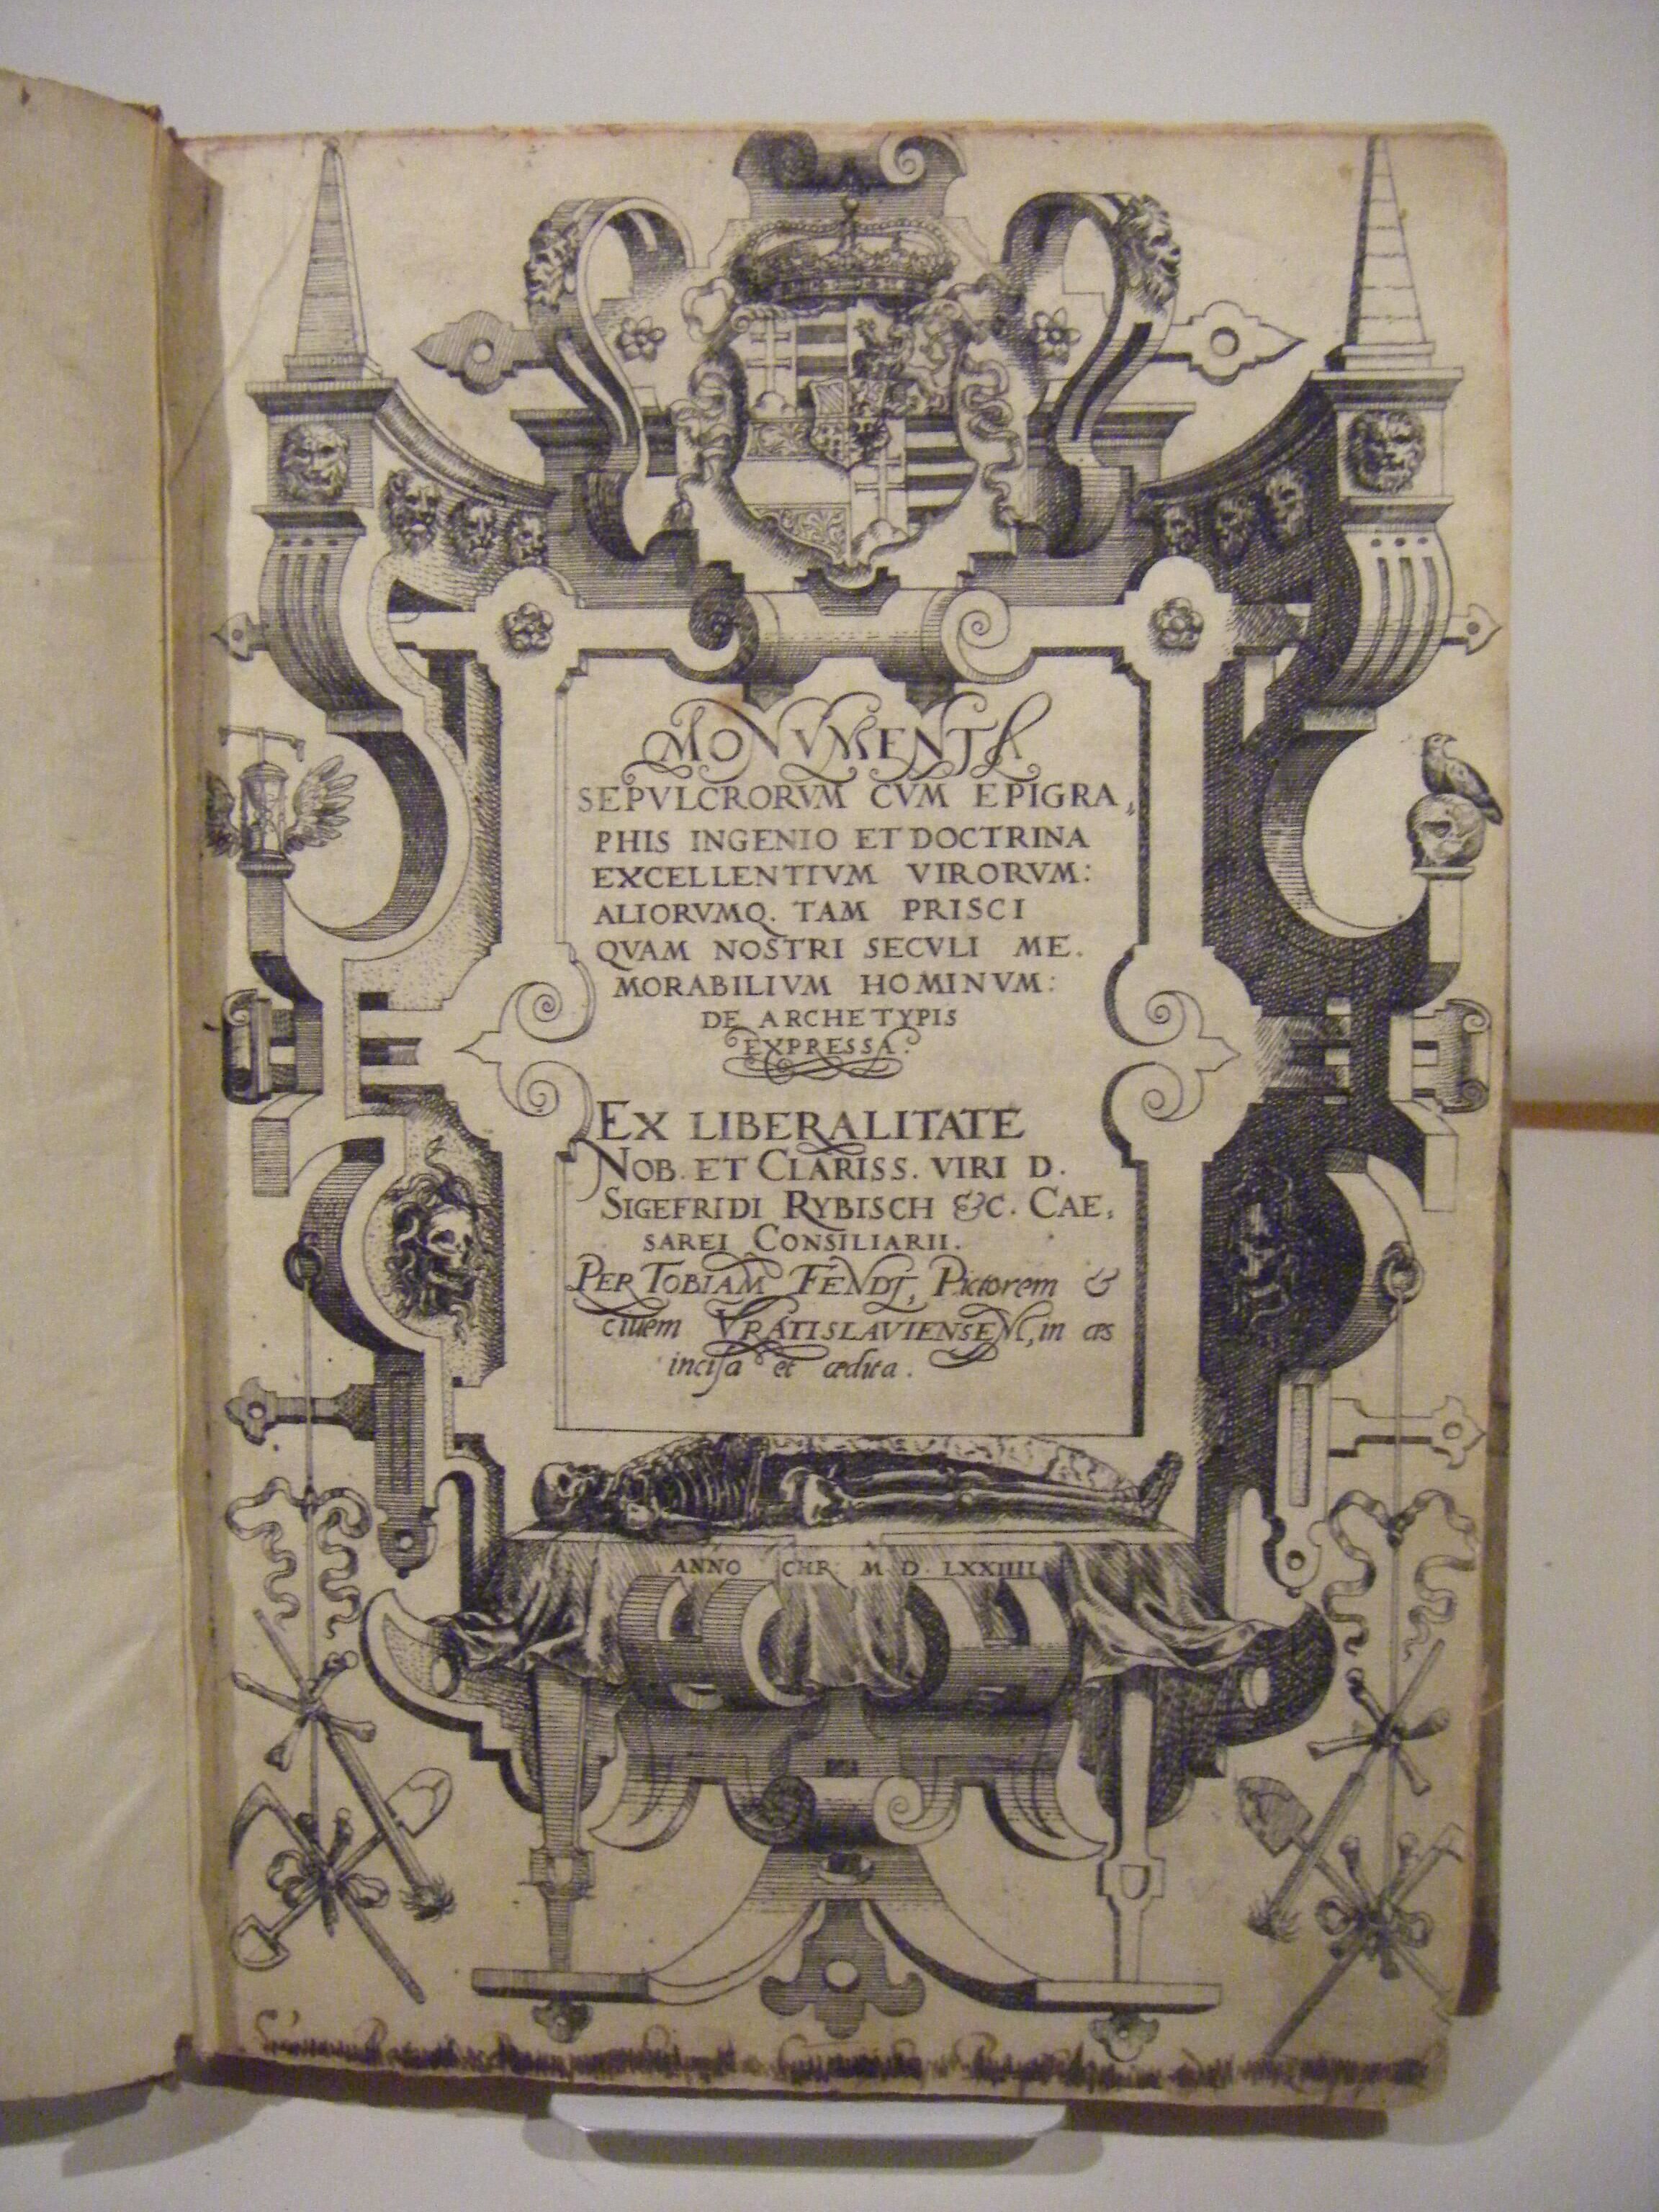 MONVMENTA
SEPVLCRORVM CVM EPIGRA,
PHIS INGENIO ET DOCTRINA
EXCELLENTIVM VIRORVM:
ALIORVMQ. TAM PRISCI
QVAM NOSTRI SECVLI ME.
MORABILIVM HOMINVM:
DE ARCHETYPIS
EXPRESSA.
EX LIBERALITATE
NOB. ET CLARISS. VIRI D.
SIGEFRIDI RYBISCH &C. CAE,
SAREI CONSILIARII.
PER TOBIAM FENDT, Pictorem &
ciuem VRATISLAVIENSEM, in æs
incisa et ædita.
ANNO CHR. M D. LXXIIII